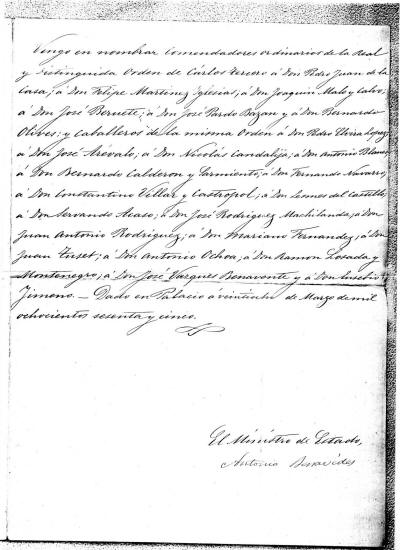 Vengo en nombrar Comendadores ordinarios de la Real
y Distinguida Orden de Cárlos Tercero á Don Pedro Juan de la
Casa; á Don Felipe Martinez Yglesias; á Don Joaquin Malo y Calvo;
á Don José Beruete; á Don José Pardo Bazan y á Don Bernardo
Olives; y Caballeros de la misma Orden á Don Pedro Utrera Lopez;
á Don José Arévalo; á Don Nicolás Candalija; á Don Antonio Blanco;
á Don Bernardo Calderon y Sarmiento; á Don Fernando Navarro;
á Don Constantino Villar y Castropol; á Don Leomes del Castillo;
á Don Servando Acaso; á Don José Rodriguez Machilanda; á Don
Juan Antonio Rodriguez; á Don Mariano Fernandez; á Don
Juan á Don Antonio Ochoa; á Don Ramon Losada y
Montenegro; á Don José Varques Benavente y á Don Eusebio
Jimeno. — Dado en Palacio á veintiocho de Marzo de mil
ochocientos sesenta y cinco.
El Ministro de Estado,
Antonio Benavides